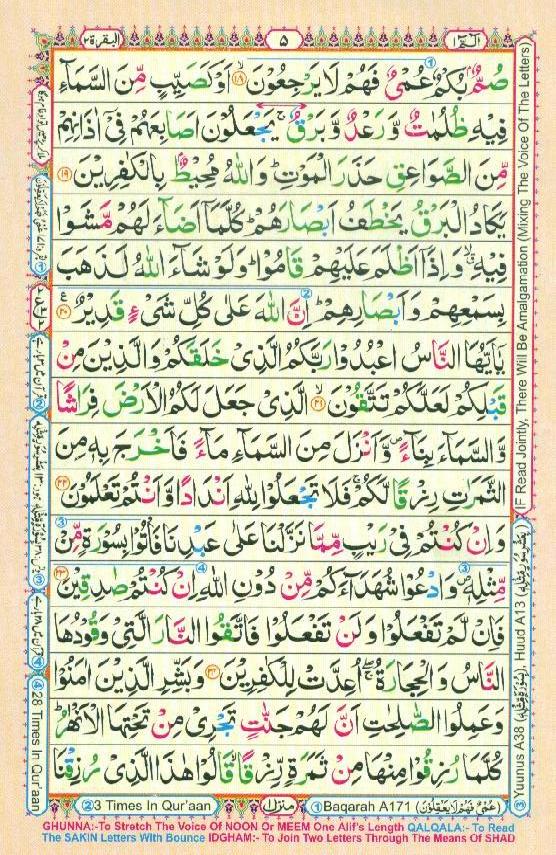 البقرة ٢
٥
الٓمّٓ ١
صُمٌّۢ بُكْمٌ عُمْىٌ فَهُمْ لَا يَرْجِعُوْنَ ۙ‏﴿۱۸﴾ اَوْ كَصَيِّبٍ مِّنَ السَّمَآءِ
فِيْهِ ظُلُمٰتٌ وَّرَعْدٌ وَّبَرْقٌ‌ ۚ يَجْعَلُوْنَ اَصَابِعَهُمْ فِىْٓ اٰذَانِهِمْ
مِّنَ الصَّوَاعِقِ حَذَرَ الْمَوْتِ‌ؕ وَاللّٰهُ مُحِيْطٌۢ بِالْكٰفِرِيْنَ‏ ﴿۱۹﴾
يَكَادُ الْبَرْقُ يَخْطَفُ اَبْصَارَهُمْ‌ؕ كُلَّمَآ اَضَآءَ لَهُمْ مَّشَوْا
فِيْهِۙ وَاِذَآ اَظْلَمَ عَلَيْهِمْ قَامُوْا‌ؕ وَلَوْ شَآءَ اللّٰهُ لَذَهَبَ
بِسَمْعِهِمْ وَاَبْصَارِهِمْ‌ؕ اِنَّ اللّٰهَ عَلٰى كُلِّ شَىْءٍ قَدِيْرٌ ﴿۲۰﴾ ع
يٰٓاَيُّهَا النَّاسُ اعْبُدُوْا رَبَّكُمُ الَّذِىْ خَلَقَكُمْ وَالَّذِيْنَ مِنْ
قَبْلِكُمْ لَعَلَّكُمْ تَتَّقُوْنَ ۙ‏﴿۲۱﴾ الَّذِىْ جَعَلَ لَكُمُ الْاَرْضَ فِرَاشًا
وَّالسَّمَآءَ بِنَآءً ص وَّاَنْزَلَ مِنَ السَّمَآءِ مَآءً فَاَخْرَجَ بِهٖ مِنَ
الثَّمَرٰتِ رِزْقًا لَّكُمْ‌ۚ فَلَا تَجْعَلُوْا لِلّٰهِ اَنْدَادًا وَّاَنْتُمْ تَعْلَمُوْنَ‏ ﴿۲۲﴾
وَاِنْ کُنْتُمْ فِىْ رَيْبٍ مِّمَّا نَزَّلْنَا عَلٰى عَبْدِنَا فَاْتُوْا بِسُوْرَةٍ مِّنْ
مِّثْلِهٖ وَادْعُوْا شُهَدَآءَكُمْ مِّنْ دُوْنِ اللّٰهِ اِنْ كُنْتُمْ صٰدِقِيْنَ‏ ﴿۲۳﴾
فَاِنْ لَّمْ تَفْعَلُوْا وَلَنْ تَفْعَلُوْا فَاتَّقُوا النَّارَ الَّتِىْ وَقُوْدُهَا
النَّاسُ وَالْحِجَارَةُ ۖۚ اُعِدَّتْ لِلْكٰفِرِيْنَ‏ ﴿۲۴﴾ وَبَشِّرِ الَّذِيْنَ اٰمَنُوْا
وَعَمِلُوا الصّٰلِحٰتِ اَنَّ لَهُمْ جَنّٰتٍ تَجْرِىْ مِنْ تَحْتِهَا الْاَنْهٰرُ‌ؕ
ڪُلَّمَا رُزِقُوْا مِنْهَا مِنْ ثَمَرَةٍ رِّزْقًا‌ۙ قَالُوْا هٰذَا الَّذِىْ رُزِقْنَا
② 3 Times In Qur'aan
منزل ١
① Baqarah A171 (عُمْىٌ فَهُمْ لَا يَعْقِلُوْنَ)
IF Read Jointly, There Will Be Amalgamation (Mixing The Voice Of The Letters)
③ Yuunus A38 (بِسُوْرَةٍ مِّثْلِهٖ), Huud A13 (بِعَشْرِ سُوَرٍ مِّثْلِهٖ)
④ 28 Times In Qur'aan
GHUNNA:-To Stretch The Voice Of NOON Or MEEM One Alif's Length QALQALA:- To Read
The SAKIN Letters With Bounce IDGHAM:- To Join Two Letters Through The Means Of SHAD